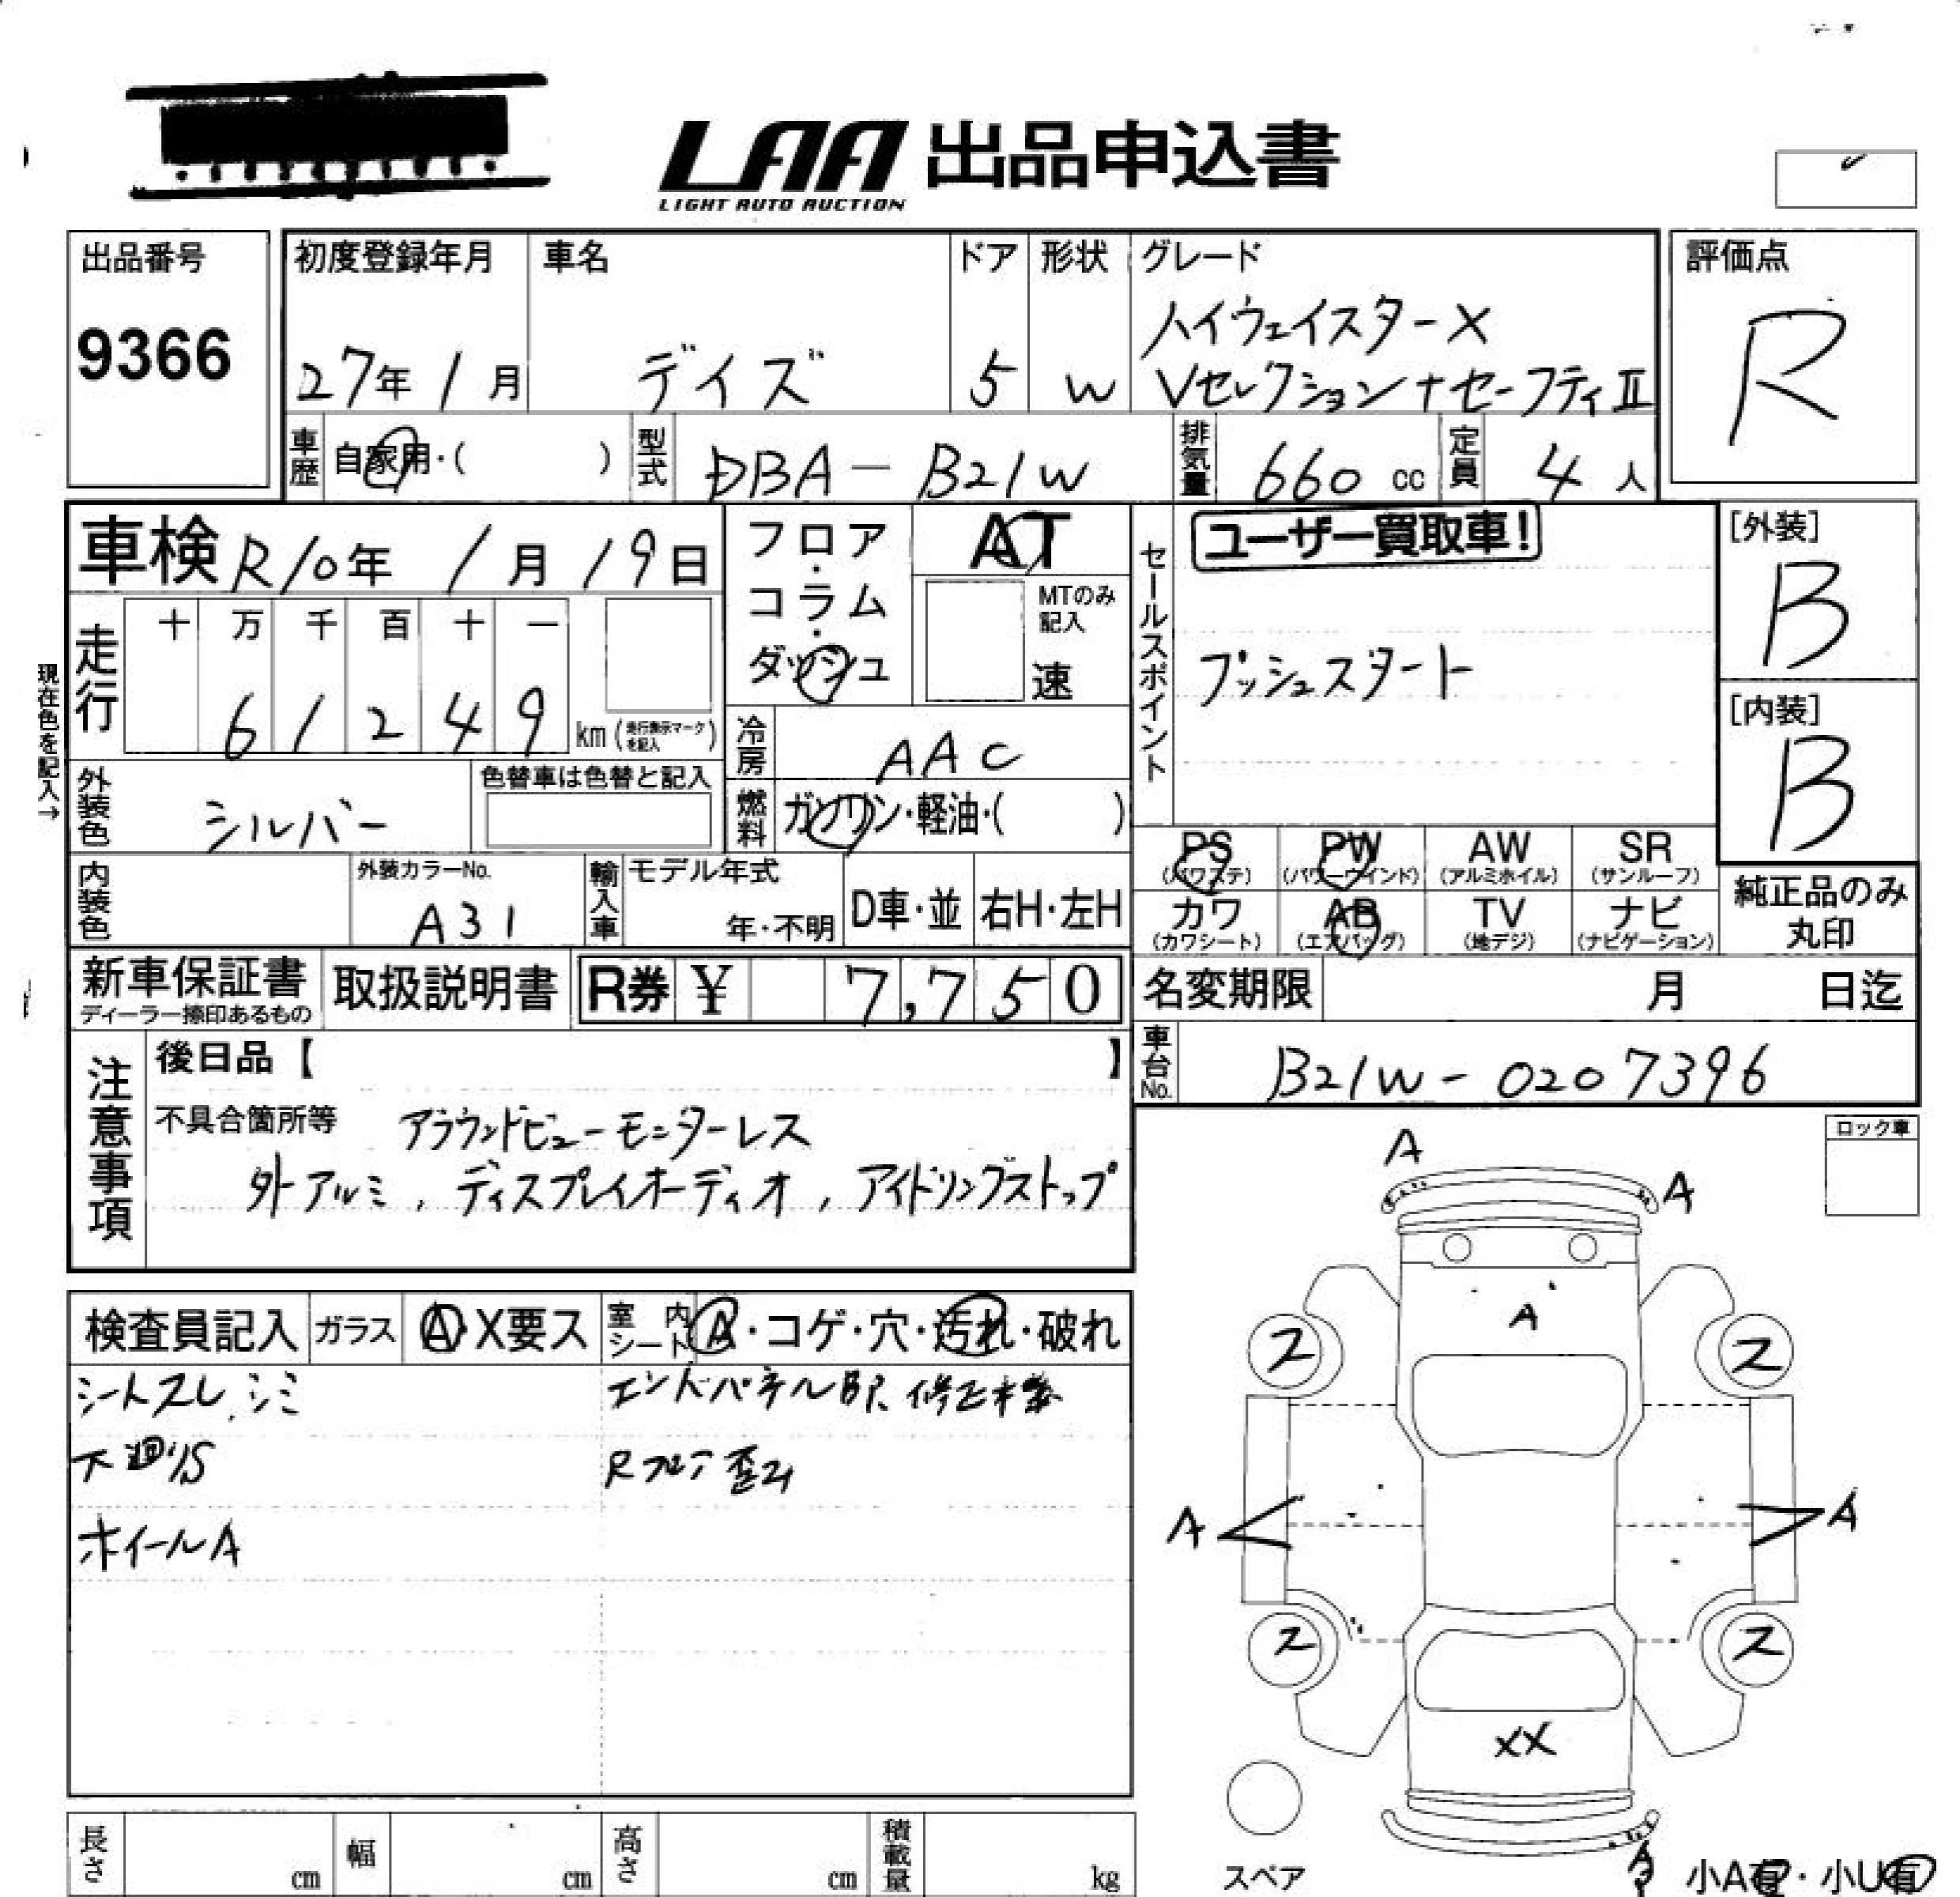 LAA 出品申込書
LIGHT AUTO AUCTION
出品番号
9366
初度登録年月
27年1月
車名
デイズ
ドア
5
形状
W
グレード
ハイウェイスターX
Vセレクション+セーフティII
評価点
R
車歴
自家用・( )
型式
DBA-B21W
排気量
660 cc
定員
4 人
車検 R10年 1月 19日
フロア・コラム・ダッシュ
AT
MTのみ
記入
速
セールスポイント
ユーザー買取車!
プッシュスタート
[外装]
B
[内装]
B
現在色を記入→
走行
十 万 千 百 十 一
6 1 2 4 9 km (走行表示マークを記入)
冷房
AAC
外装色
シルバー
色替車は色替と記入
燃料
ガソリン・軽油・( )
PS
(パワステ)
PW
(パワーウインド)
AW
(アルミホイル)
SR
(サンルーフ)
内装色
外装カラーNo.
A31
輸入車
モデル年式
年・不明
D車・並
右H・左H
カワ
(カワシート)
AB
(エアバッグ)
TV
(地デジ)
ナビ
(ナビゲーション)
純正品のみ
丸印
新車保証書
ディーラー捺印あるもの
取扱説明書
R券 ¥ 7,750
名変期限 月 日迄
車台No.
B21W-0207396
注意事項
後日品【 】
不具合箇所等 アラウンドビューモニターレス
外アルミ, ディスプレイオーディオ, アイドリングストップ
ロック車
検査員記入
ガラス
A・X要ス
室内シート
A・コゲ・穴・汚れ・破れ
シートスレ、シミ
エンドパネルBP.修正未
下廻りS
Rフロア歪み
ホイールA
A
A
A
ス
ス
A
A
ス
ス
XX
A
スペア
小A有・小U有
長さ cm
幅 cm
高さ cm
積載量 kg